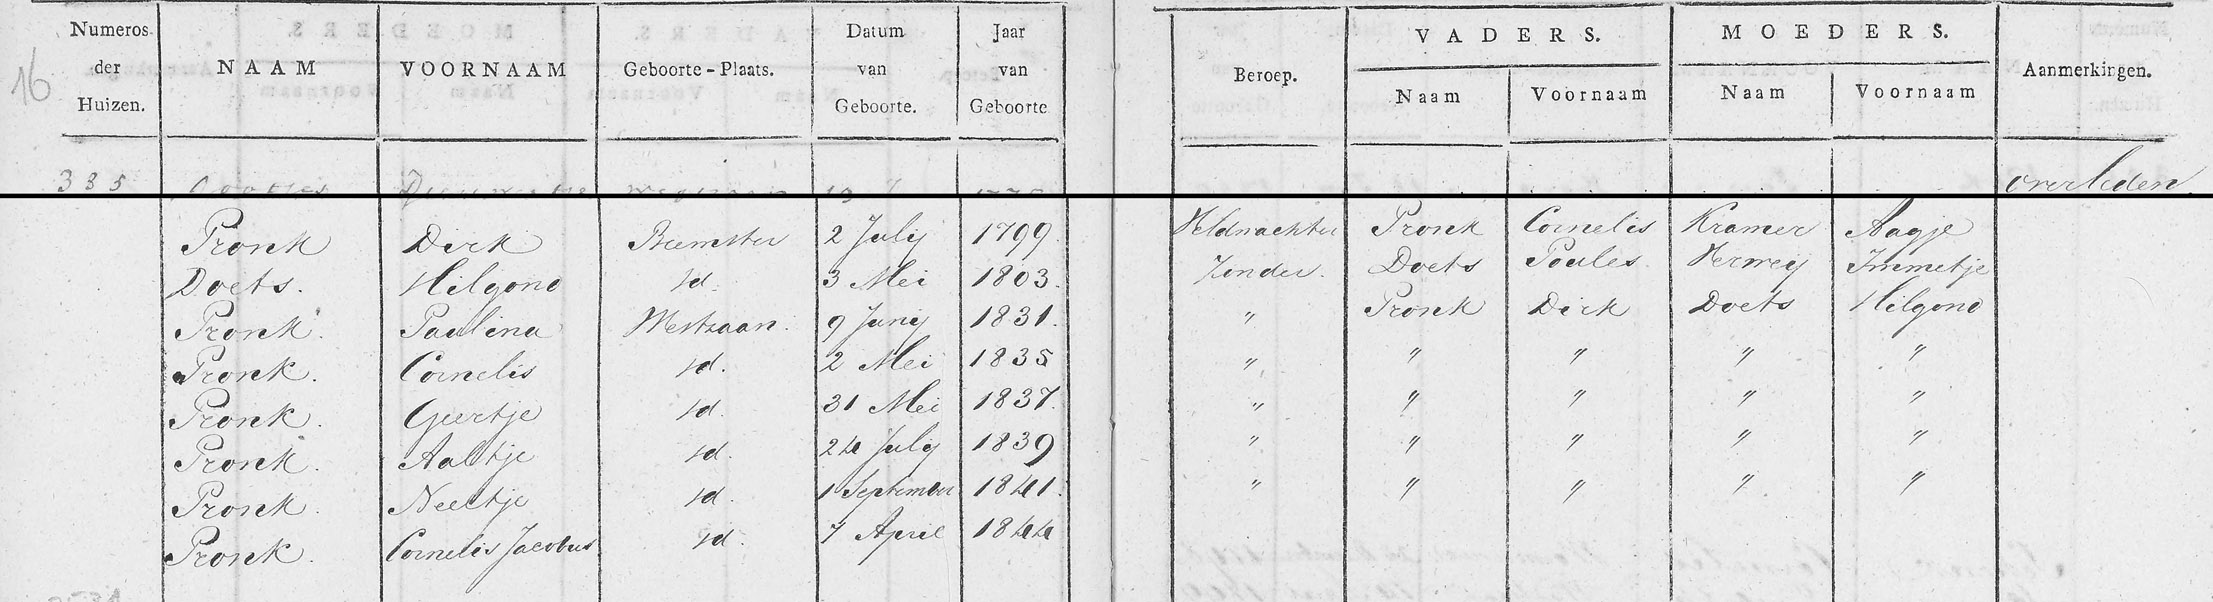 16
Numeros der Huizen. NAAM VOORNAAM Geboorte-Plaats. Datum van Geboorte. Jaar van Geboorte Beroep. VADERS. Naam Voornaam MOEDERS. Naam Voornaam Aanmerkingen.
335 overleden
Pronk Dirk Beemster 2 July 1799 Veldwachter Pronk Cornelis Kramer Aagje
Doets. Hilgond id. 3 Mei 1803. Zonder. Doets Poulus Verwey Immetje
Pronk. Paulina Westzaan. 9 Juny 1831. " Pronk Dirk Doets Hilgond
Pronk. Cornelis id. 2 Mei 1835 " " " " "
Pronk. Geertje id. 31 Mei 1837. " " " " "
Pronk. Aaltje id. 24 July 1839 " " " " "
Pronk. Neeltje id. 1 September 1841. " " " " "
Pronk. Cornelis Jacobus id. 7 April 1844